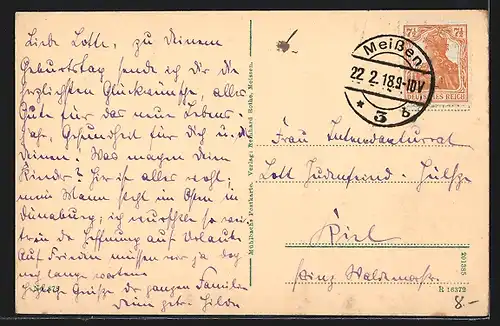 Liebe Lotte, zu Deinem
Geburtstag sende ich Dir die
herzlichsten Glückwünsche, alles
Gute für das neue Lebens-
jahr, Gesundheit für Dich u. die
Deinen. Was machen Deine
Kinder? Hier ist alles wohl;
mein Mann steht im Osten in
Dünaburg; ich wurschtle so weiter
in der Hoffnung auf Urlaub.
Auf Frieden müssen wir ja doch
noch lange warten
Herzliche Grüsse der ganzen Familie
Deine getr. Hilde
Mühlbachs Postkarte. Verlag: Reinhard Rothe, Meissen.
Meißen
22 2.18.9-10V
* 3 b
7½ 7½
DEUTSCHES REICH
Frau Intendanturrat
Lott
Kiel
Prinz Waldemarstr.
201285
R 16373
8.-